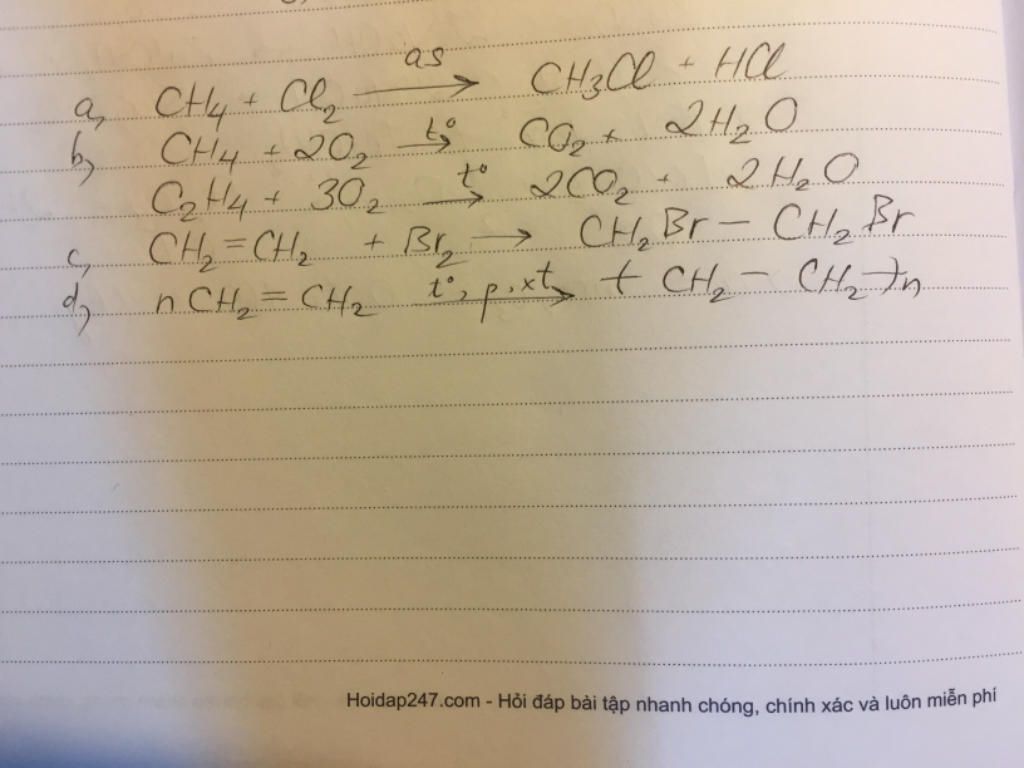 a, CH₄ + Cl₂ —as→ CH₃Cl + HCl
b, CH₄ + 2O₂ —t°→ CO₂ + 2H₂O
C₂H₄ + 3O₂ —t°→ 2CO₂ + 2H₂O
c, CH₂=CH₂ + Br₂ → CH₂Br – CH₂Br
d, nCH₂=CH₂ —t°, p, xt→ (CH₂ – CH₂)n
Hoidap247.com - Hỏi đáp bài tập nhanh chóng, chính xác và luôn miễn phí